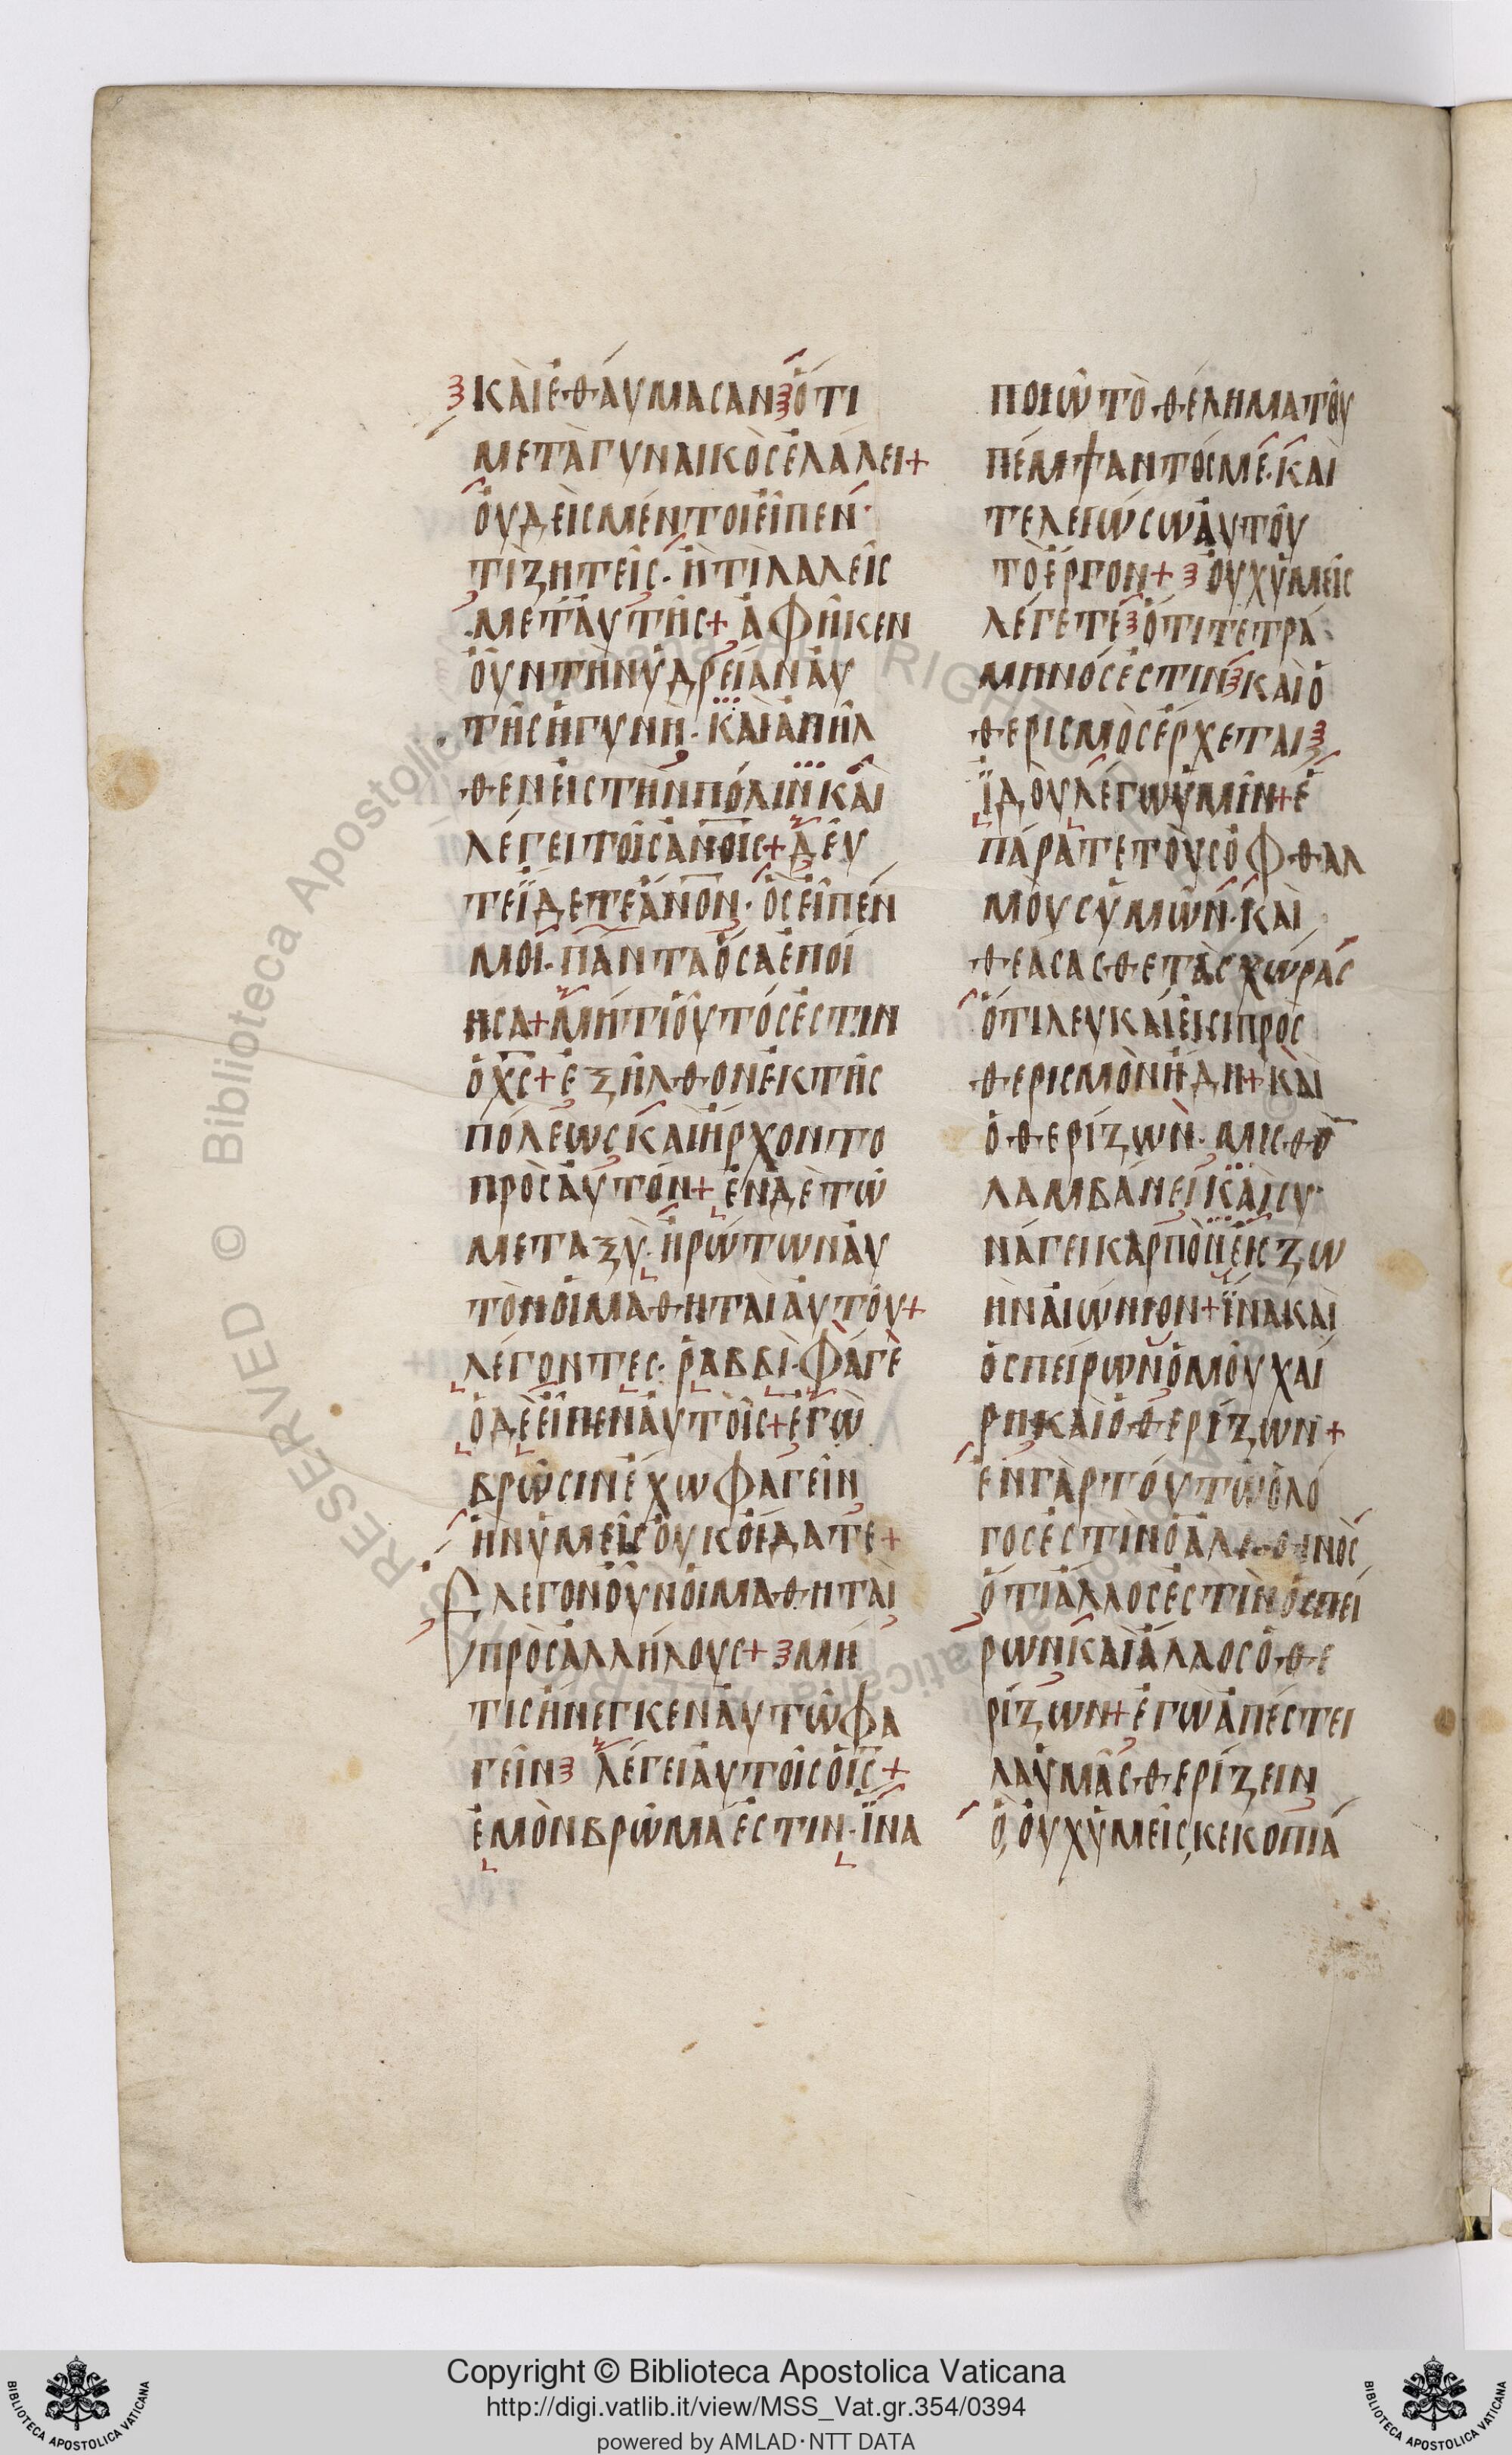 ΚΑῚ ἘΘΑΎΜΑΣΑΝ ὍΤΙ
ΜΕΤᾺ ΓΥΝΑΙΚῸΣ ἘΛΆΛΕΙ+
ΟὐΔΕῚΣ ΜΈΝΤΟΙ ΕἾΠΕΝ·
ΤΊ ΖΗΤΕῖΣ· Ἢ ΤΊ ΛΑΛΕῖΣ
ΜΕΤ' ΑὐΤῆΣ+ ἈΦῆΚΕΝ
ΟὖΝ ΤῊΝ ὙΔΡΕΊΑΝ Αὐ
ΤῆΣ Ἡ ΓΥΝΉ· ΚΑῚ ἈΠῆΛ
ΘΕΝ ΕἸΣ ΤῊΝ ΠΌΛΙΝ ΚΑῚ
ΛΈΓΕΙ ΤΟῖΣ ἈΝΟΙΣ+ ΔΕῦ
ΤΕ ἼΔΕΤΕ ἈΝΟΝ· ὋΣ ΕἾΠΈΝ
ΜΟΙ· ΠΆΝΤΑ ὍΣΑ ἘΠΟΊ
ΗΣΑ+ ΜΉΤΙ ΟὗΤΌΣ ἘΣΤΙΝ
Ὁ ΧΣ+ ἘΞῆΛΘΟΝ ἘΚ ΤῆΣ
ΠΌΛΕΩΣ ΚΑῚ ἬΡΧΟΝΤΟ
ΠΡῸΣ ΑὐΤΌΝ+ ἘΝ ΔῈ Τῶ
ΜΕΤΑΞῪ· ἨΡΏΤΩΝ Αὐ
ΤῸΝ ΟἹ ΜΑΘΗΤΑῚ ΑὐΤΟῦ+
ΛΈΓΟΝΤΕΣ· ῬΑΒΒῚ· ΦΆΓΕ
Ὁ ΔῈ ΕἾΠΕΝ ΑὐΤΟῖΣ+ ἘΓῺ
ΒΡῶΣΙΝ ἜΧΩ ΦΑΓΕῖΝ
ἫΝ ὙΜΕῖΣ ΟὐΚ ΟἼΔΑΤΕ+
ἜΛΕΓΟΝ ΟὖΝ ΟἹ ΜΑΘΗΤΑῚ
ΠΡῸΣ ἈΛΛΉΛΟΥΣ+ ΜΉ
ΤΙΣ ἬΝΕΓΚΕΝ ΑὐΤῶ ΦΑ
ΓΕῖΝ ΛΈΓΕΙ ΑὐΤΟῖΣ Ὁ ΙΣ+
ἘΜῸΝ ΒΡῶΜΑ ἘΣΤΙΝ· ἽΝΑ
ΠΟΙῶ ΤῸ ΘΈΛΗΜΑ ΤΟῦ
ΠΈΜΨΑΝΤΌΣ ΜΕ· ΚΑῚ
ΤΕΛΕΙΏΣΩ ΑὐΤΟῦ
ΤῸ ἜΡΓΟΝ+ ΟὐΧ ὙΜΕῖΣ
ΛΈΓΕΤΕ ὍΤΙ ΤΕΤΡΆ
ΜΗΝΌΣ ἘΣΤΙΝ ΚΑῚ Ὁ
ΘΕΡΙΣΜῸΣ ἜΡΧΕΤΑΙ
ἸΔΟῪ ΛΈΓΩ ὙΜῖΝ+ Ἐ
ΠΆΡΑΤΕ ΤΟῪΣ ὈΦΘΑΛ
ΜΟῪΣ ὙΜῶΝ· ΚΑῚ
ΘΕΆΣΑΣΘΕ ΤᾺΣ ΧΏΡΑΣ
ὍΤΙ ΛΕΥΚΑΊ ΕἸΣΙ ΠΡῸΣ
ΘΕΡΙΣΜῸΝ ἬΔΗ+ ΚΑῚ
Ὁ ΘΕΡΊΖΩΝ· ΜΙΣΘῸ
ΛΑΜΒΆΝΕΙ ΚΑῚ ΣΥ
ΝΆΓΕΙ ΚΑΡΠῸΝ ΕἸΣ ΖΩ
ῊΝ ΑἸΏΝΙΟΝ+ ἽΝΑ ΚΑῚ
Ὁ ΣΠΕΊΡΩΝ ὉΜΟῦ ΧΑΊ
ΡΗ ΚΑῚ Ὁ ΘΕΡΊΖΩΝ+
ἘΝ ΓᾺΡ ΤΟΎΤΩ Ὁ ΛΌ
ΓΟΣ ἘΣΤῚΝ Ὁ ἈΛΗΘΙΝῸΣ
ὍΤΙ ἌΛΛΟΣ ἘΣΤῚΝ Ὁ ΣΠΕΊ
ΡΩΝ ΚΑῚ ἌΛΛΟΣ Ὁ ΘΕ
ΡΊΖΩΝ+ ἘΓῺ ἈΠΈΣΤΕΙ
ΛΑ ὙΜᾶΣ ΘΕΡΊΖΕΙΝ
Ὃ, ΟὐΧ ὙΜΕῖΣ, ΚΕΚΟΠΙΆ
RESERVED © Biblioteca Apostolica Vaticana ALL RIGHTS
Copyright © Biblioteca Apostolica Vaticana
http://digi.vatlib.it/view/MSS_Vat.gr.354/0394
powered by AMLAD·NTT DATA
BIBLIOTECA APOSTOLICA VATICANA
BIBLIOTECA APOSTOLICA VATICANA